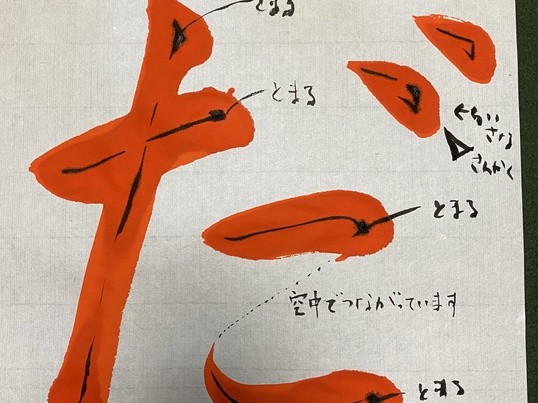 だ
とまる
とまる
ちいさな
さんかく
とまる
空中でつながっています
とまる